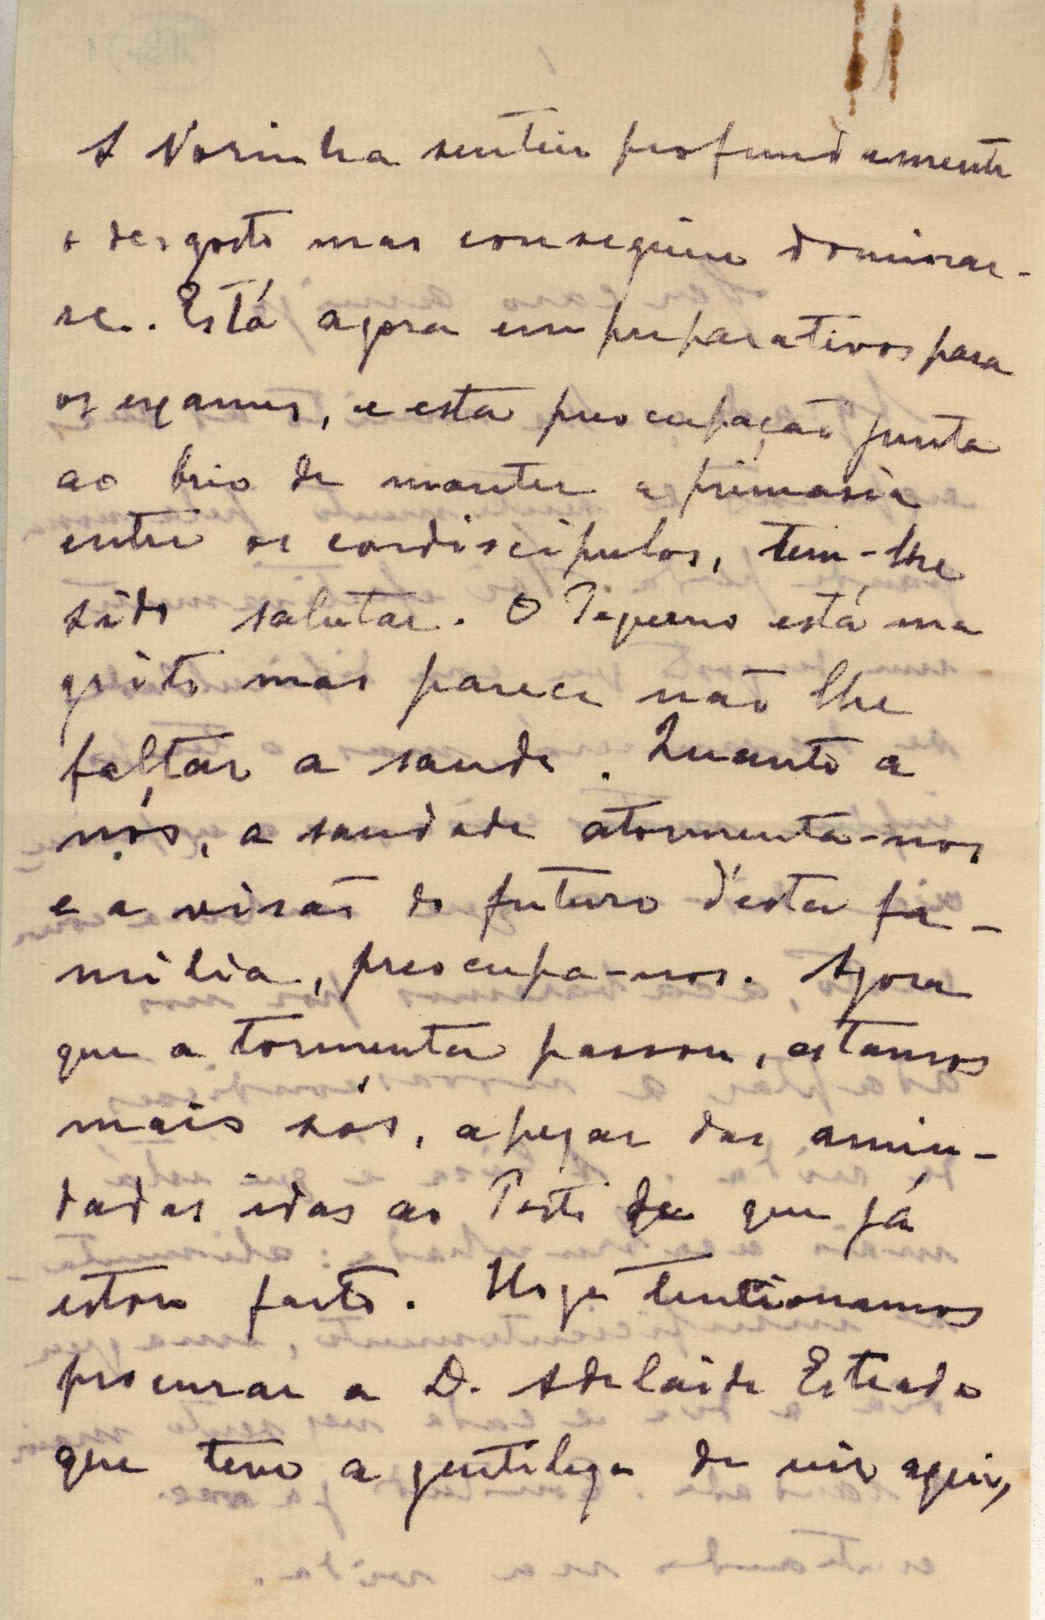 A Norinha sentiu profundamente
o desgosto mas conseguiu dominar-
se. Está agora em preparativos para
os exames, e esta preocupação junta
ao brio de manter a primasia
entre os condiscipulos, tem-lhe
sido salutar. O Piquerno está ma
grito mas parece não lhe
faltar a saude. Quanto a
nós, a saudade atormenta-nos
e a visão do futuro d'esta fa-
milia, preocupa-nos. Agora
que a tormenta passou, estamos
mais sós, apezar das amiu-
dadas idas ao Porto de que já
estou farto. Hoje tencionamos
procurar a D. Adelaide Estrada
que teve a gentileza de vir aqui,